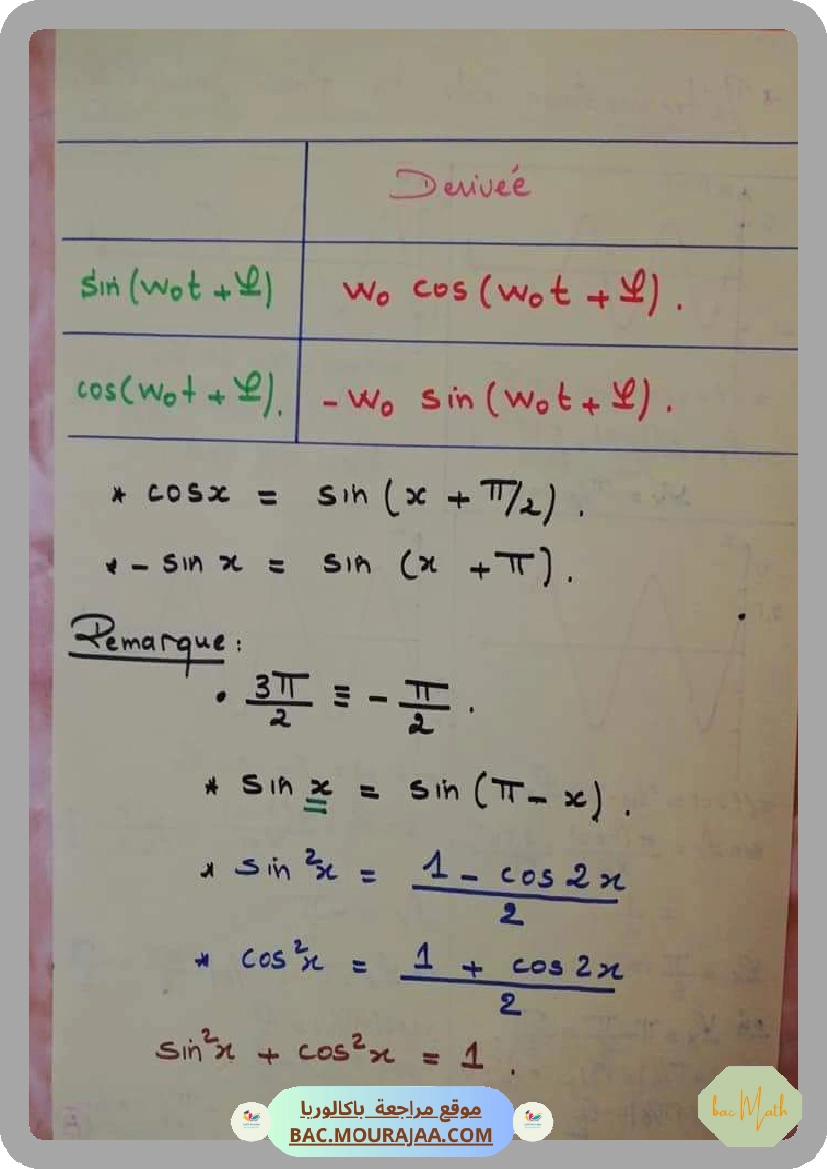 Derivée
sin(w₀t + φ) w₀ cos(w₀t + φ).
cos(w₀t + φ). - w₀ sin(w₀t + φ).
* cosx = sin(x + π/2).
* - sin x = sin (x + π).
Remarque :
• 3π/2 ≡ - π/2.
* sin x = sin(π - x).
* sin²x = (1 - cos 2x)/2
* cos²x = (1 + cos 2x)/2
sin²x + cos²x = 1.
موقع مراجعة باكالوريا
BAC.MOURAJAA.COM
bac Math